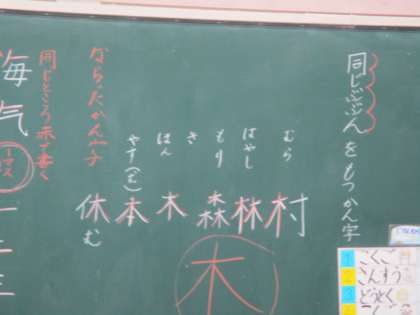 同じぶぶんをもつかん字
むら
はやし
もり
き
ほん
やす(む)
村
林
森
木
本
休む
木
ならったかん字
同じところ赤で書く
1 こくご
2 さんすう
3 どうとく